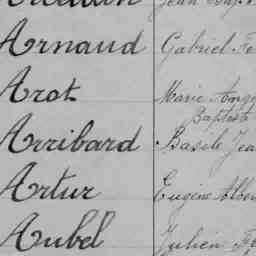 Arnaud Gabriel
Arot Marie
Baptiste
Arribard Basile Jean
Artur Eugène
Aubel Julien